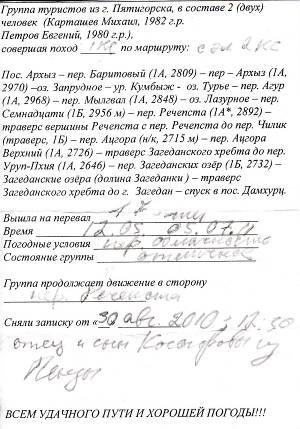 Группа туристов из г. Пятигорска, в составе 2 (двух)
человек (Карташев Михаил, 1982 г.р
Петров Евгений, 1980 г.р.),
совершая поход 1КС по маршруту: с эл 2КС
Пос. Архыз – пер. Баритовый (1А, 2809) – пер – Архыз (1А,
2970) –оз. Запрудное – ур. Кумбыж - оз. Турье – пер. Агур
(1А, 2968) – пер. Мылгвал (1А, 2848) – оз. Лазурное – пер.
Семнадцати (1Б, 2956 м) – пер. Речепста (1А*, 2892) –
траверс вершины Речепста с пер. Речепста до пер. Чилик
(траверс, 1Б) – пер. Ацгора (н/к, 2715 м) – пер. Ацгора
Верхний (1А, 2726) – траверс Загеданского хребта до пер.
Уруп-Пхия (1А, 2646) – пер. Загеданских озёр (1Б, 2732) –
Загеданские озёра (долина Загеданки ) – траверс
Загеданского хребта до г. Загедан – спуск в пос. Дамхурц.
Вышла на перевал
Время 12.05
Погодные условия пер. облачность
Состояние группы отличное
Группа продолжает движение в сторону
пер. Речепста
Сняли записку от «30 авг. 2010 г 12.30
отец и сын из
Пензы
ВСЕМ УДАЧНОГО ПУТИ И ХОРОШЕЙ ПОГОДЫ!!!